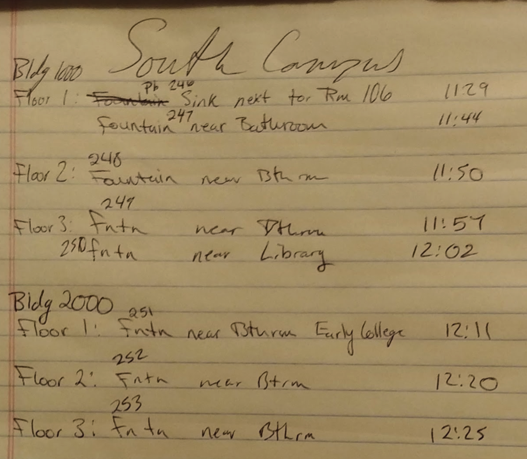 South Campus
Bldg 1000
Ph 246
Floor 1: Fountain Sink next to Rm 106 11:29
247
Fountain near Bathroom 11:44
248
Floor 2: Fountain near Bthrm 11:50
249
Floor 3: Fntn near Bthrm 11:57
250 fntn near Library 12:02
Bldg 2000
251
Floor 1: Fntn near Bthrm Early College 12:11
252
Floor 2: Fntn near Btrm 12:20
253
Floor 3: Fntn near Bthrm 12:25